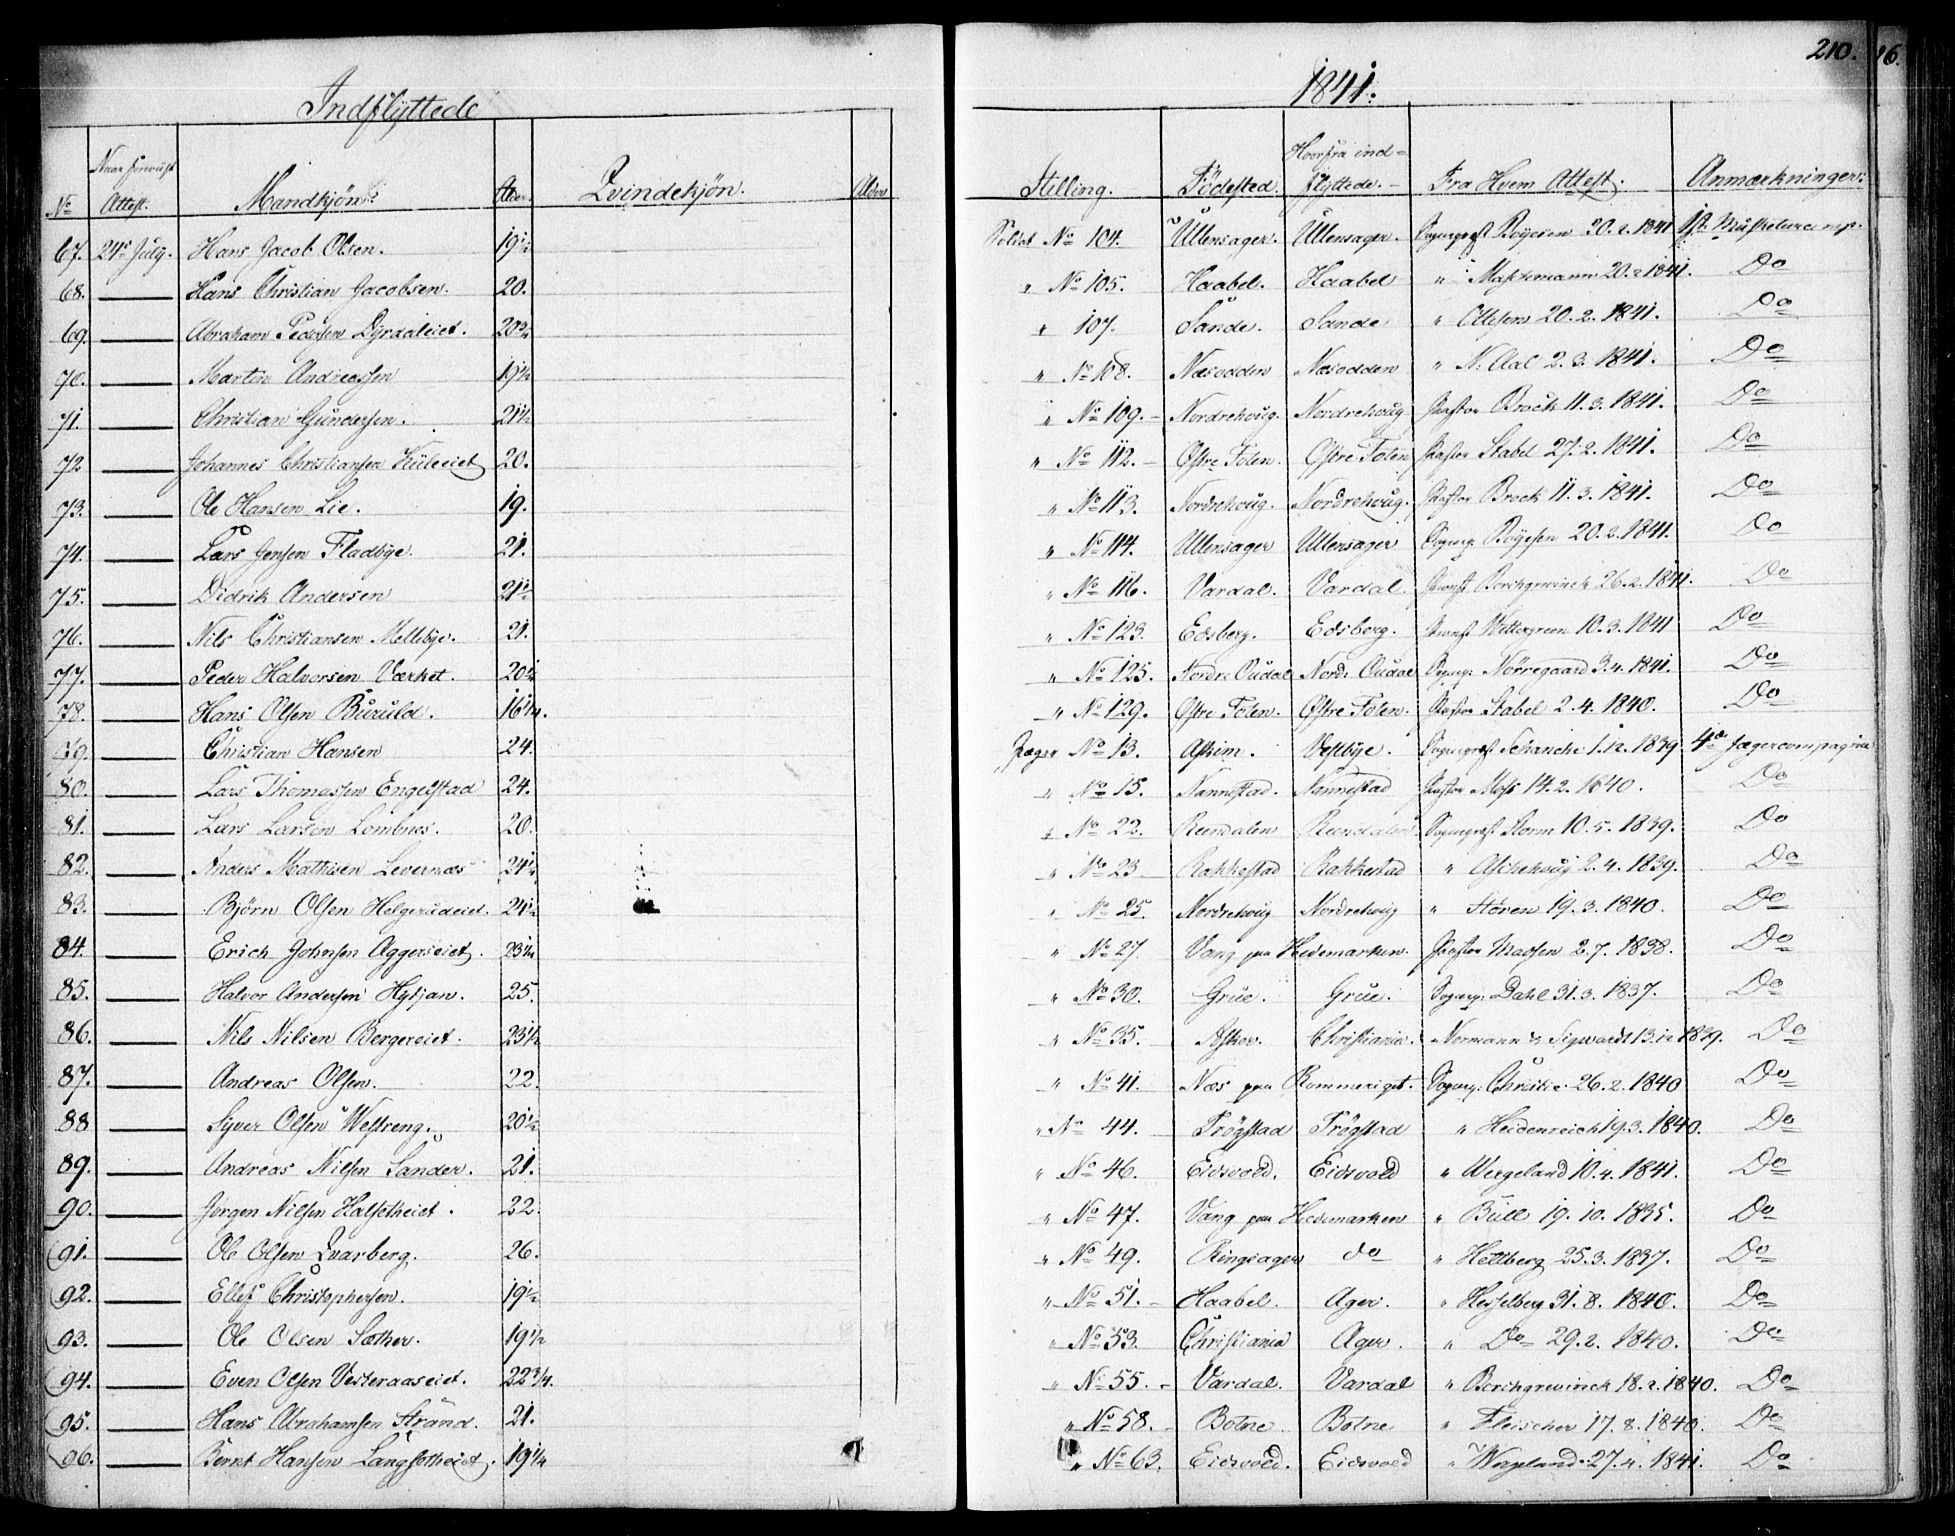 210. 16.
Indflyttede
1841.
No Attest. Mandkjøn. Alder Qvindekjøn. Alder Stilling. Födested. Hvorfra indflyttede. Fra Hvem Attest. Anmærkninger.
67. 24de July. Hans Jacob Olsen. 19½ Soldat No 104. Ullensager. Ullensager. Sogneprest Boyesen 20.2.1841
68. Hans Christian Jacobsen. 20. " No 105. Haabel. Haabel " 20.2.1841. Do
69. Abraham Pedersen Dyrdaleiet. " 107. Sande. Sande " Ottesen 20.2.1841. Do
70. Martin Andreassen 19½ " No 108. Næsodden Næsodden " N. Aal 2.3.1841. Do
71. Christian Gundersen. 21½ " No 109. Nordrehoug. Nordrehoug Pastor Brock 11.3.1841. Do
72 Johannes Christiansen Huleeiet 20. " No 112. Østre Toten. Østre Toten Pastor Stabel 27.2.1841. Do
73. Ole Hansen Lie. 19. " No 113. Nordrehoug. Nordrehoug. Pastor Brock 11.3.1841. Do
74. Lars Jensen Fladbye. 21. " No 114. Ullensager Ullensager Sognep. Boyesen 20.2.1841. Do
75. Didrik Andersen 21½ " No 116. Vardal. Vardal. Borchgrevinck 26.2.1841. Do
76. Nils Christiansen Mellebye. 21. " No 123. Edsberg. Edsberg. Wettergreen 10.3.1841 Do
77. Peder Halvorsen Værket. " No 125. Nordre Oudal Nord: Oudal Sognep: Nørregaard 3.4.1841. Do
78. Hans Olsen Buruld. 16¼. " No 129. Østre Toten. Østre Toten. Pastor Stabel 2.4.1840. Do
79. Christian Hansen 24. Jæger No 13. Askim. Vestbye. Sogneprest Schanche 1.12.1839 4de Jægercompagnie
80. Lars Thomassen Engelstad 24. " No 15. Nannestad. Nannestad Pastor Moss 14.2.1840. Do
81. Lars Larsen Lombnes. 20. " No 22. Rendalen Rendalen Sogneprest Storm 10.5.1839. Do
82. Anders Mathisen Levernæs " No 23 Rakkestad Rakkestad " Aschehoug 2.4.1839. Do
83. Björn Olsen Helgerudeiet. 24½ " No 25. Nordrehoug Nordrehoug " Stören 19.3.1840. Do
84. Erich Johnsen Aggerseiet. " No 27. Vang paa Hedemarken. Pastor 2.7.1838. Do
85. Halvor Andersen 25. " No 30. Grue. Grue. Sognep: Dahl 31.3.1837. Do
86. Nils Nilsen Bergereiet. 23½ " No 35. Asker. Christiania. Normann & Sigwardt 13.12.1839. Do
87. Andreas Olsen. 22. " No 41. Næs paa Rommeriget. Sognep: Christie. 26.2.1840 Do
88 Syver Olsen Westreng. 20½ " No 44. Trögstad Trögstad " Heidenreich 19.3.1840. Do
89. Andreas Nilsen Sander. 21. " No 46. Eidsvold. Eidsvold " Wergeland 10.4.1841. Do
90. Jørgen Nilsen Halsetheiet. 22. " No 47. Vang paa Hedemarken " Bull 19.10.1835. Do
91. Ole Olsen Qvarberg. 26. " No 49. Ringsager do " Heltberg 25.3.1837. Do
92. Ellef Christophersen. 19½ " No 51. Haabel. Ager. " Hesselberg 31.8.1840. Do
93. Ole Olsen Sæther. 19½ " No 53. Christiania Ager. " Do 29.2.1840. Do
94. Even Olsen Vesteraaseiet. 22¾. " No 55. Vardal. Vardal " Borchgrevinck 18.2.1840. Do
95. Hans Abrahamsen Strand. 21. " No 58. Botne Botne " Fleischer 17.8.1840. Do
96. Bernt Hansen Langsetheiet. 19¼ " No 63. Eidsvold. Eidsvold " Wergeland. 27.4.1841. Do